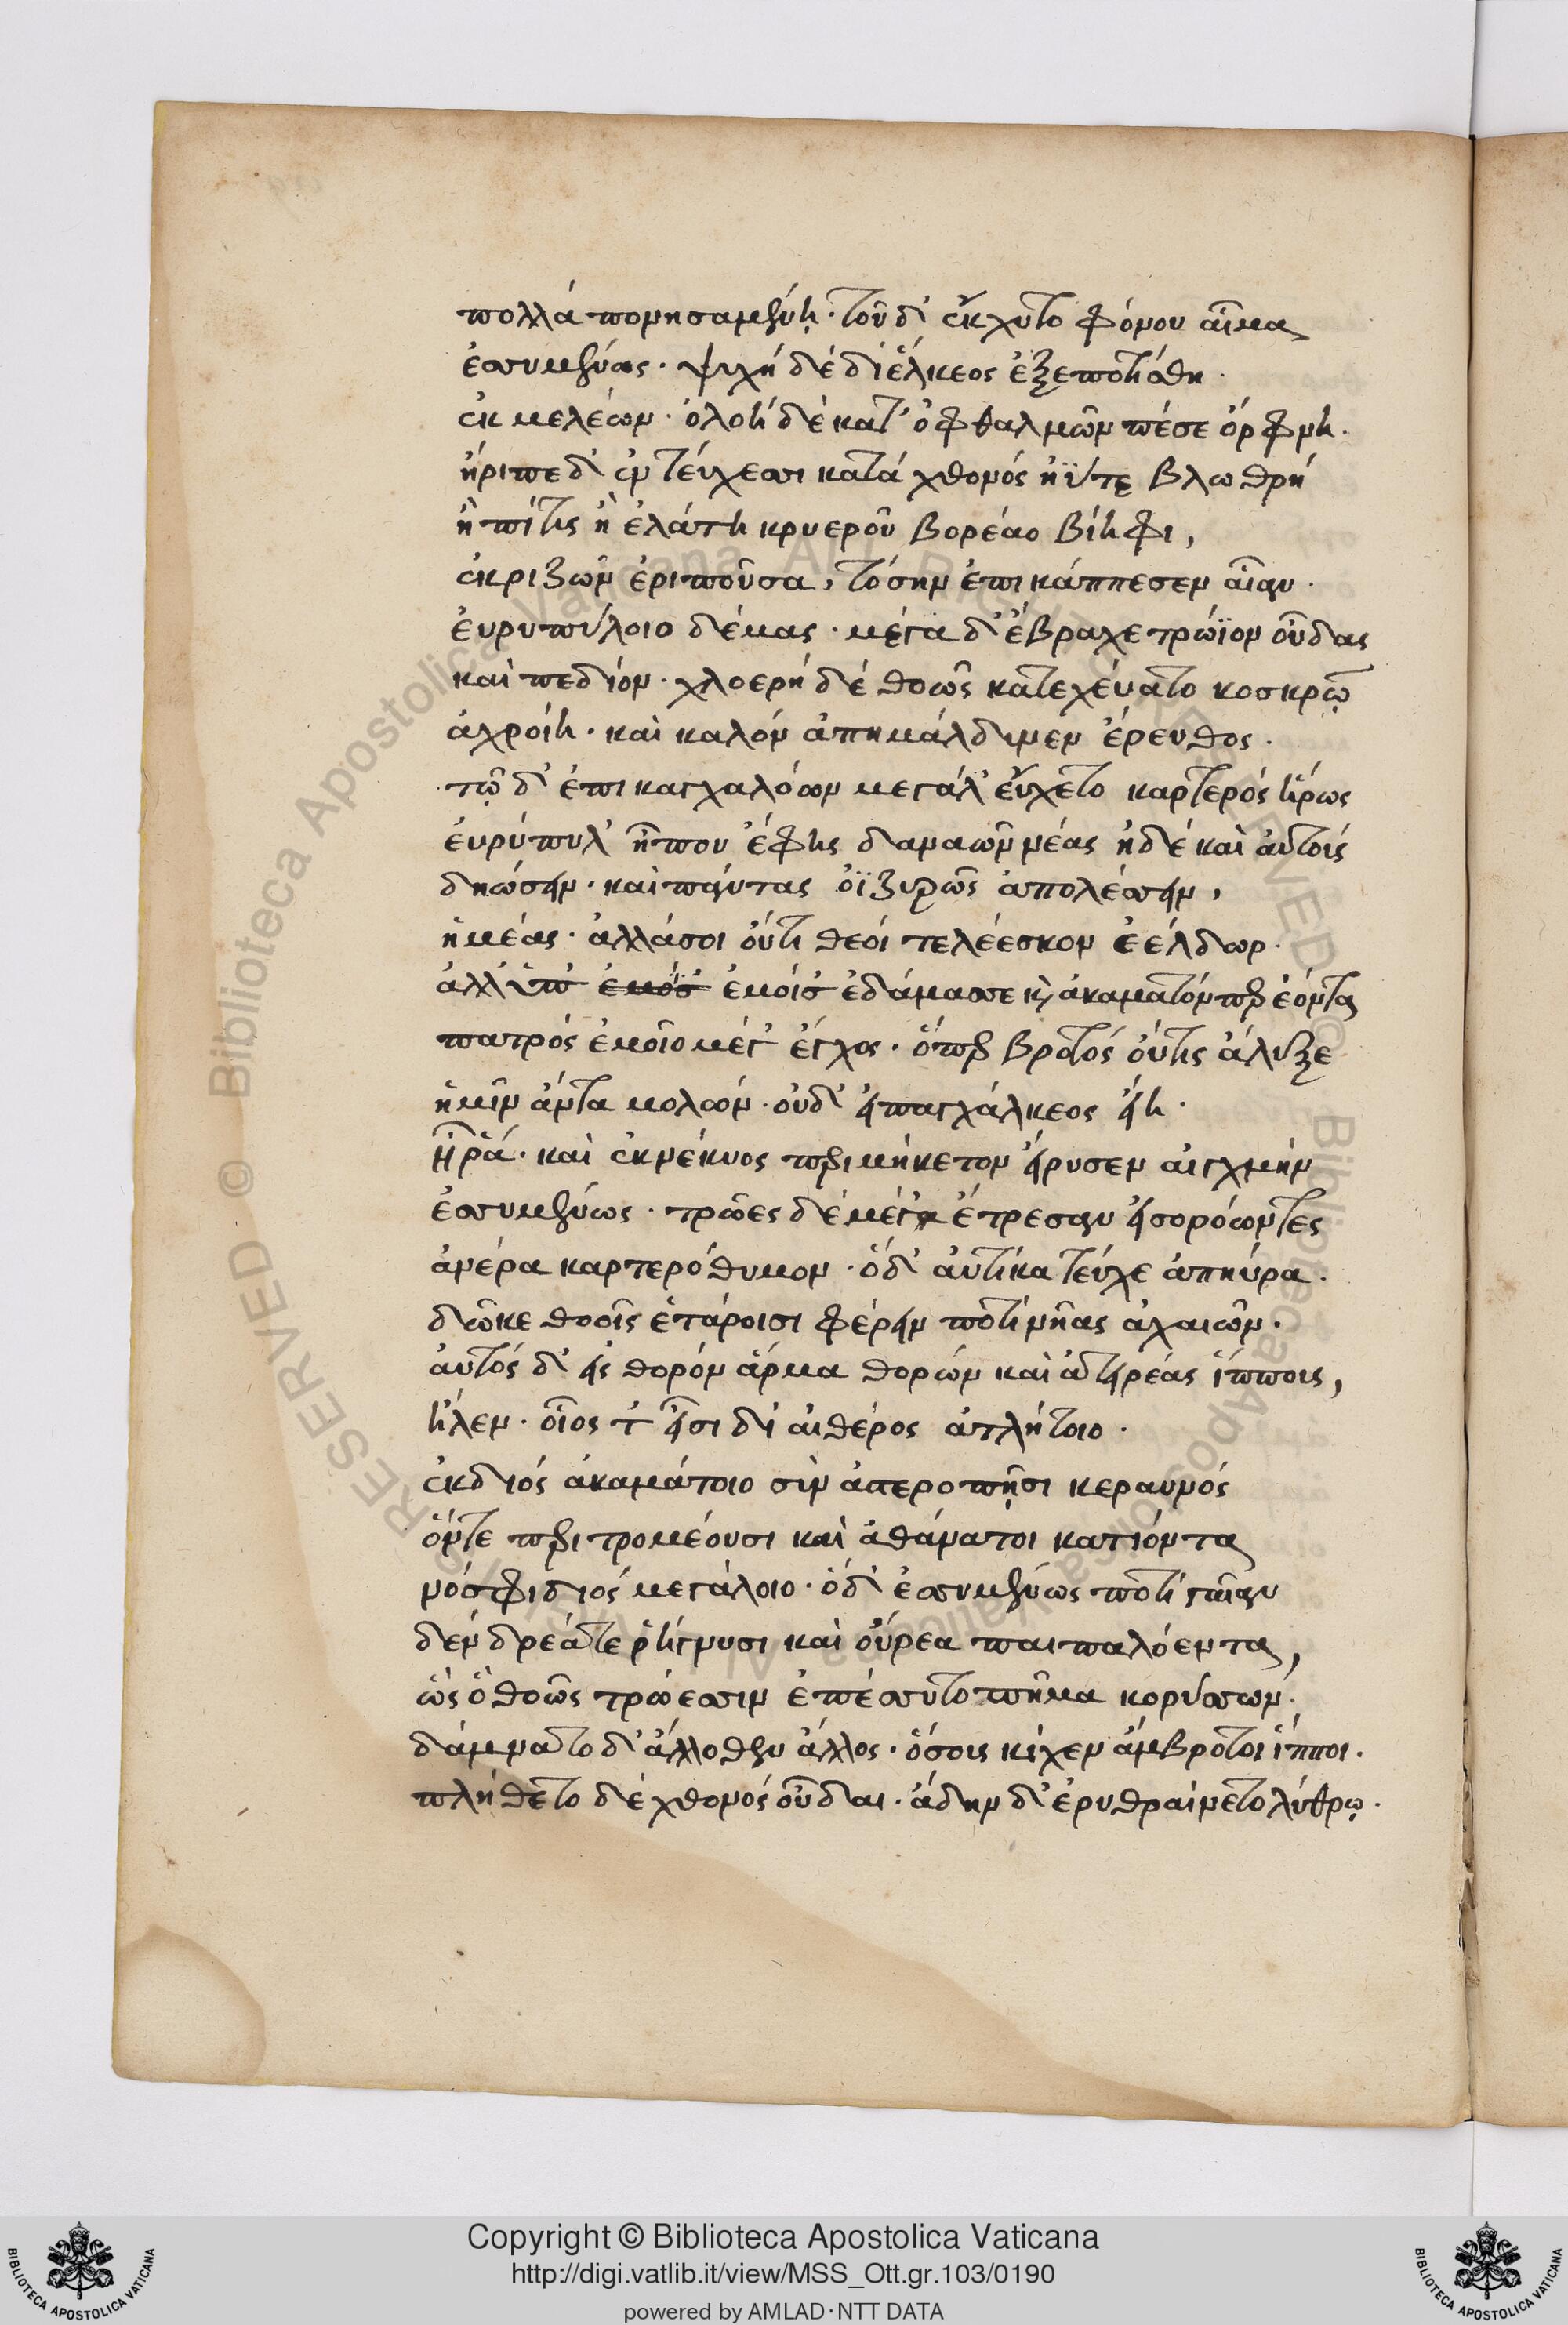 πολλά πονησαμένη· τοῦ δ' ἔκχυτο φόνου αἷμα
ἐσσυμένως· ψυχή δέ δι' ἕλκεος ἐξεποτήθη·
ἐκ μελέων· ὀλοή δέ κατ' ὀφθαλμῶν πέσε ὄρφνη.
ἤριπε δ' ἐν τεύχεσσι κατά χθονός ἠΰτε βλωθρή
ἢ πίτυς ἢ ἐλάτη κρυεροῦ βορέαο βίηφι,
ἐκ ριζῶν ἐριποῦσα, τόσην ἐπικάππεσεν αἶαν·
ἐυρυπύλοιο δέμας· μέγα δ' ἔβραχε τρώϊον οὖδας
καὶ πεδίον· χλοερή δέ θοῶς κατεχέυατο νοσκρῷ
ἀχροίη· καὶ καλόν ἀπημάλδυνεν ἔρευθος·
τῷ δ' ἐπικαγχαλόων μεγάλ' εὔχετο καρτερός ἥρως
ἐυρύπυλ' ἦπου ἔφης δαναῶν νέας ἠδέ καὶ αὐτούς
δηώσειν· καὶ πάντας ὀϊζυρῶς ἀπολέσσειν,
ἡμέας· ἀλλά σοι ὄυτι θεοί τελέεσκον ἐέλδωρ·
ἀλλ' ὑπ' ἐμόϊσ' ἐμοίσ' ἐδάμασσε κ(αὶ) ἀκαματόν περ ἐόντα
πατρός ἐμοῖο μέγ' ἔγχος· ὅπερ βροτός ὄυτις ἄλυξε
ἡμῖν ἄντα μολών· οὐδ' εἰ παγχάλκεος εἴη·
Ἦ ῥά· καὶ ἐκ νέκυος περιμήκετον εἴρυσεν αἰχμήν
ἐσσυμένως· τρῶες δέ μέγα ἔτρεσαν εἰσορόωντες
ἀνέρα καρτερόθυμον· ὁ δ' αὐτίκα τεύχε' ἀπηύρα·
δῶκε θοοῖς ἑτάροισι φέρειν ποτί νῆας ἀχαιῶν·
ἀυτός δ' εἰς θορόν ἅρμα θορών καὶ ἀτειρέας ἵππους,
ἤλεν· οἷος τ' εἶσι δι' αἰθέρος ἀτλήτοιο·
ἐκ διός ἀκαμάτοιο σὺν ἀστεροπῇσι κεραυνός
ὅντε περιτρομέουσι καὶ ἀθάνατοι κατιόντα
νόσφι διός μεγάλοιο· ὁ δ' ἐσσυμένως ποτί γαῖαν
δένδρεά τε ῥήγνυσι καὶ οὔρεα παιπαλόεντα,
ὣς ὃ θοῶς τρώεσσιν ἐπέσσυτο πῆμα κορύσσων·
δάμνατο δ' ἄλλοθεν ἄλλος· ὅσους κίχεν ἄμβροτοι ἵπποι·
πλήθετο δέ χθονός οὖδαι· ἄδην δ' ἐρυθραίνετο λύθρῳ·
Copyright © Biblioteca Apostolica Vaticana
http://digi.vatlib.it/view/MSS_Ott.gr.103/0190
powered by AMLAD·NTT DATA